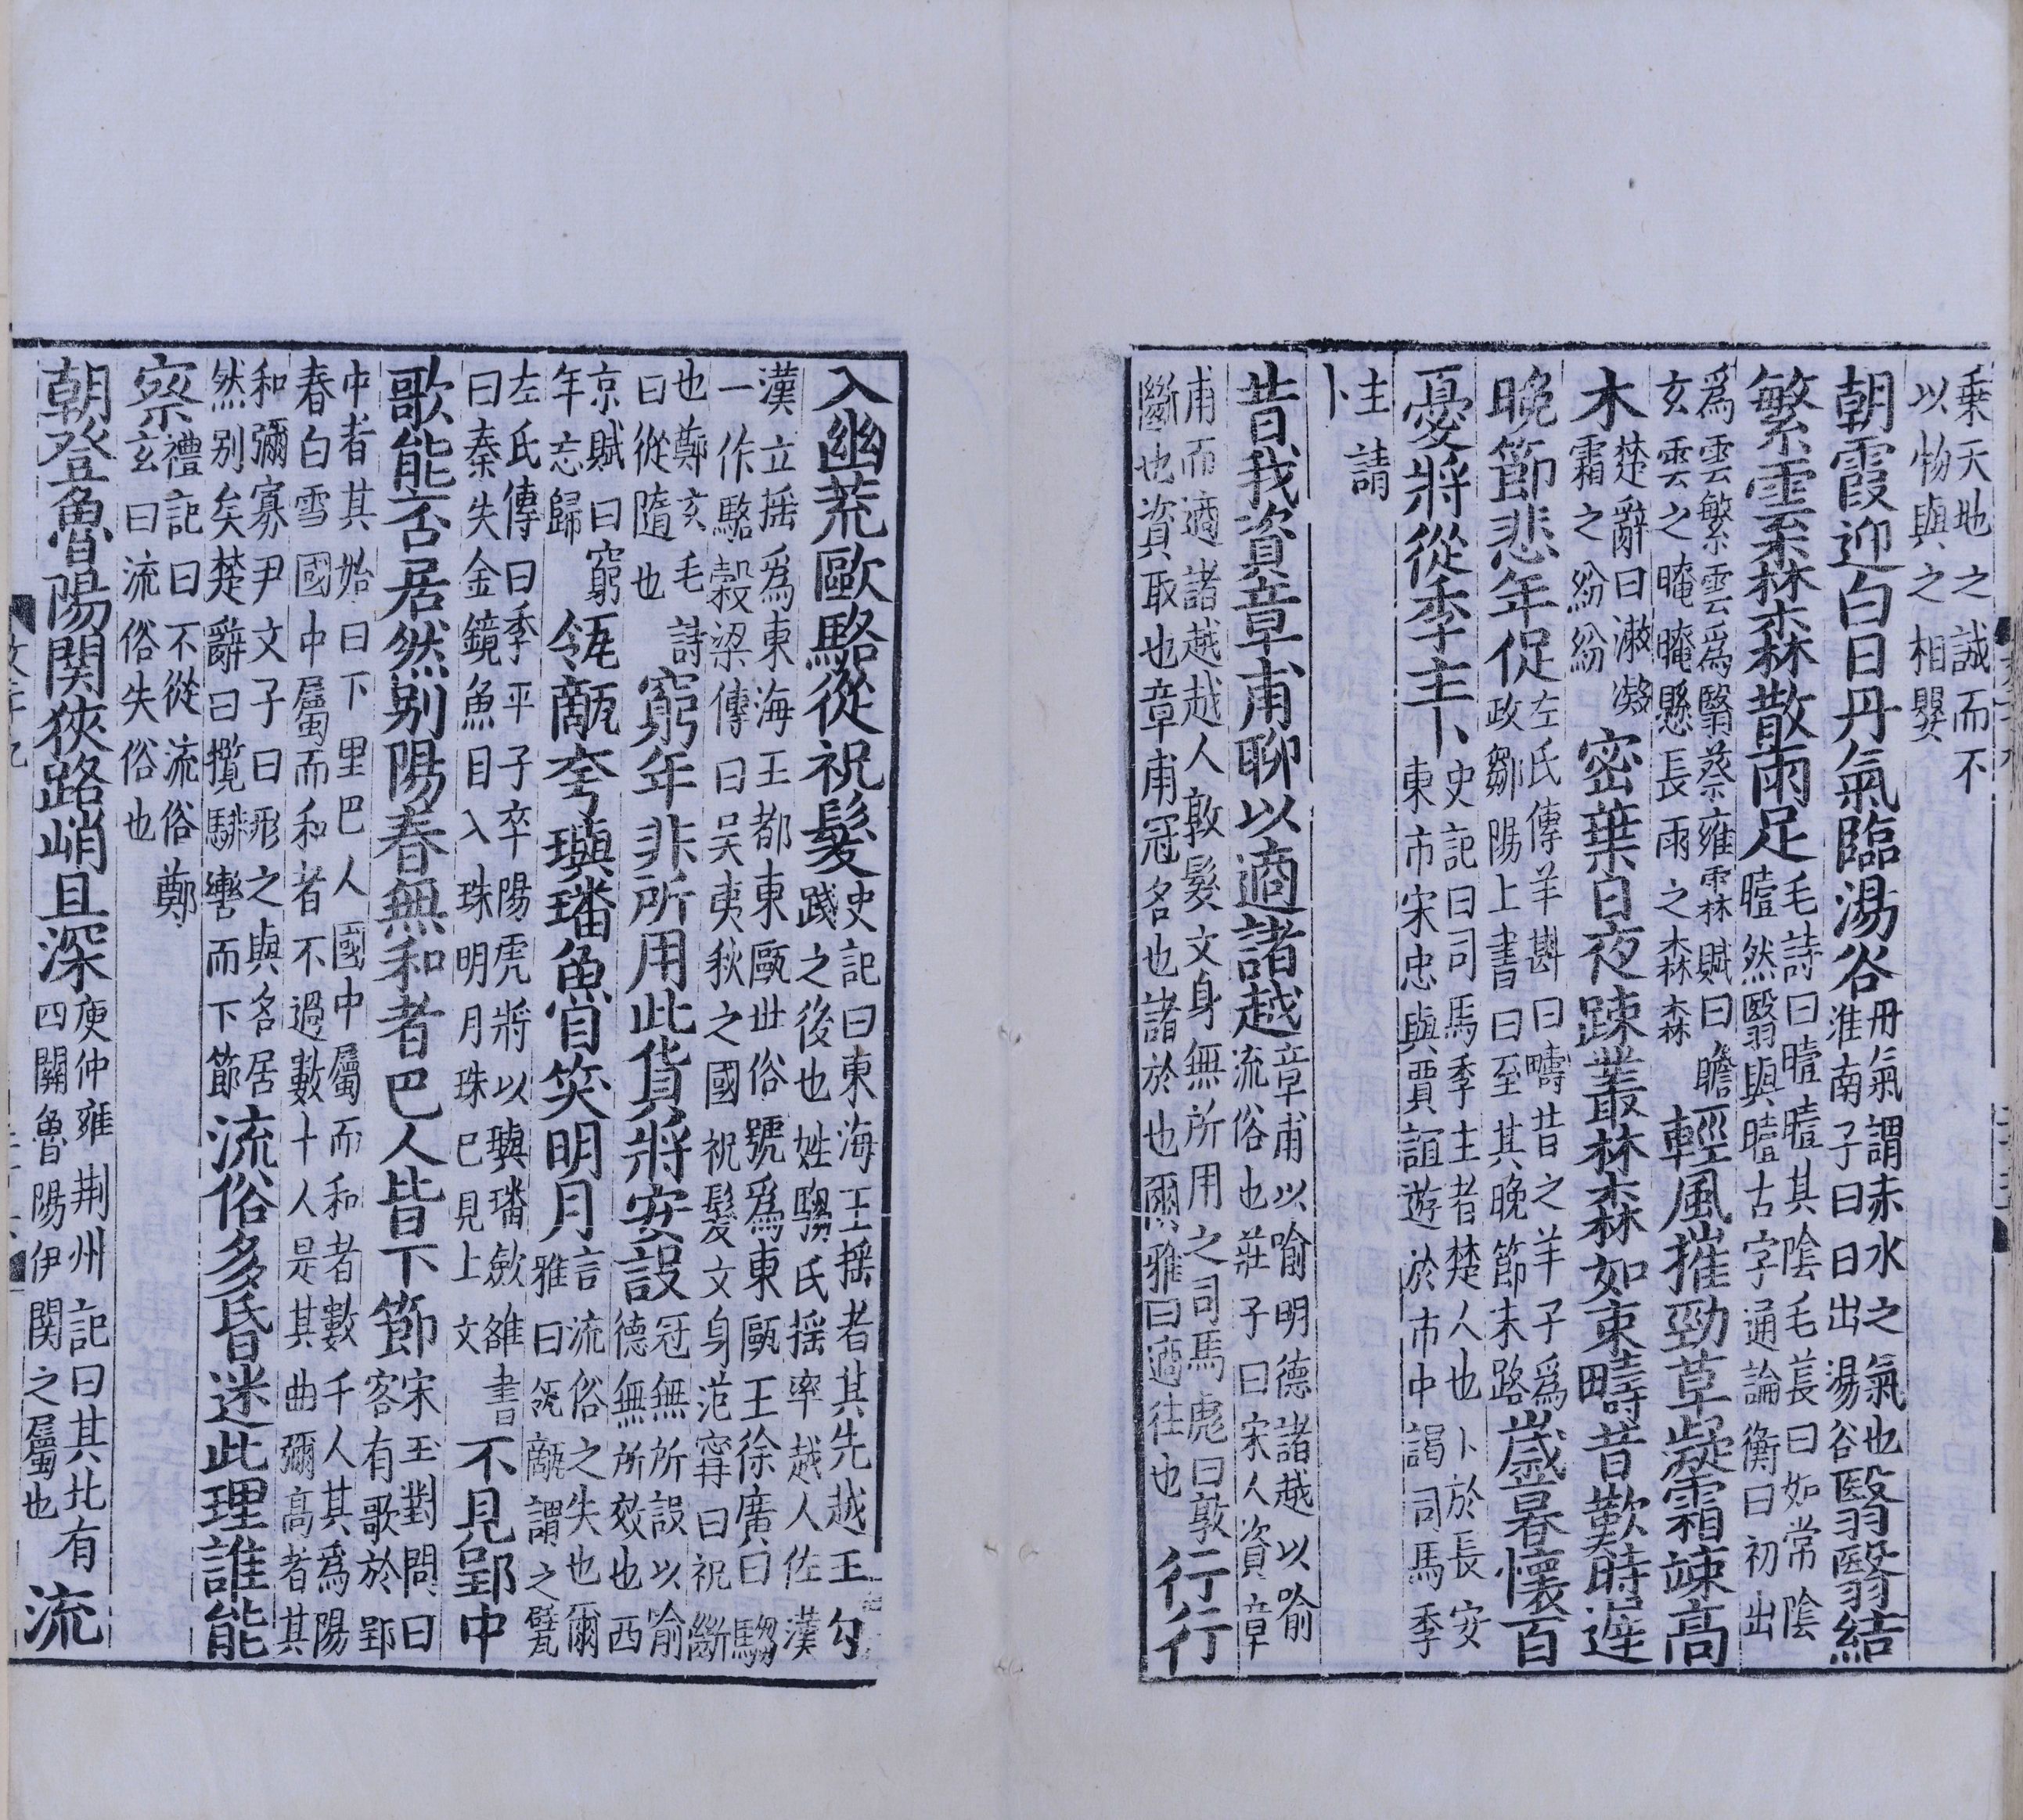 乗天地之誠而不
以物與之相嬰
朝霞迎白日丹氣臨湯谷
丹氣謂赤水之氣也
淮南子曰日出湯谷
翳翳結
繁雲森森散雨足
毛詩曰曀曀其陰毛萇曰如常陰
曀然翳與曀古字通論衡曰初出
爲雲繁雲爲翳蔡雍霖賦曰瞻
玄雲之晻晻懸長雨之森森
輕風摧勁草凝霜竦高
木
楚辭曰漱凝
霜之紛紛
密葉日夜踈叢林森如束疇昔歎時遲
晚節悲年促
左氏傳羊斟曰疇昔之羊子爲
政鄒陽上書曰至其晚節末路
歲暮懷百
憂將從季主卜
史記曰司馬季主者楚人也卜於長安
東市宋忠與賈誼遊於市中謁司馬季
主請
卜
昔我資章甫聊以適諸越
章甫以喻明德諸越以喻
流俗也莊子曰宋人資章
甫而適諸越越人敦髮文身無所用之司馬彪曰敦
斷也資取也章甫冠名也諸於也爾雅曰適往也
行行
入幽荒歐駱從祝髮
史記曰東海王揺者其先越王勾
踐之後也姓騶氏揺率越人佐漢
漢立揺爲東海王都東甌世俗號爲東甌王徐廣曰騶
一作駱穀梁傳曰吴夷狄之國祝髮文身范甯曰祝斷
也鄭玄毛詩
曰從隨也
窮年非所用此貨將安設
冠無所設以喻
德無所效也西
京賦曰窮
年忘歸
瓴甋夸璵璠魚目笑明月
言流俗之失也爾
雅曰瓴甋謂之甓
左氏傳曰季平子卒陽虎將以璵璠斂雒書
曰秦失金鏡魚目入珠明月珠已見上文
不見郢中
歌能否居然别陽春無和者巴人皆下節
宋玉對問曰
客有歌於郢
中者其始曰下里巴人國中屬而和者數千人其爲陽
春白雪國中屬而和者不過數十人是其曲彌髙者其
和彌寡尹文子曰形之與名居
然别矣楚辭曰攬騑轡而下節
流俗多昏迷此理誰能
察
禮記曰不從流俗鄭
玄曰流俗失俗也
朝登魯陽関狹路峭且深
庾仲雍荆州記曰其北有
四關魯陽伊関之屬也
流